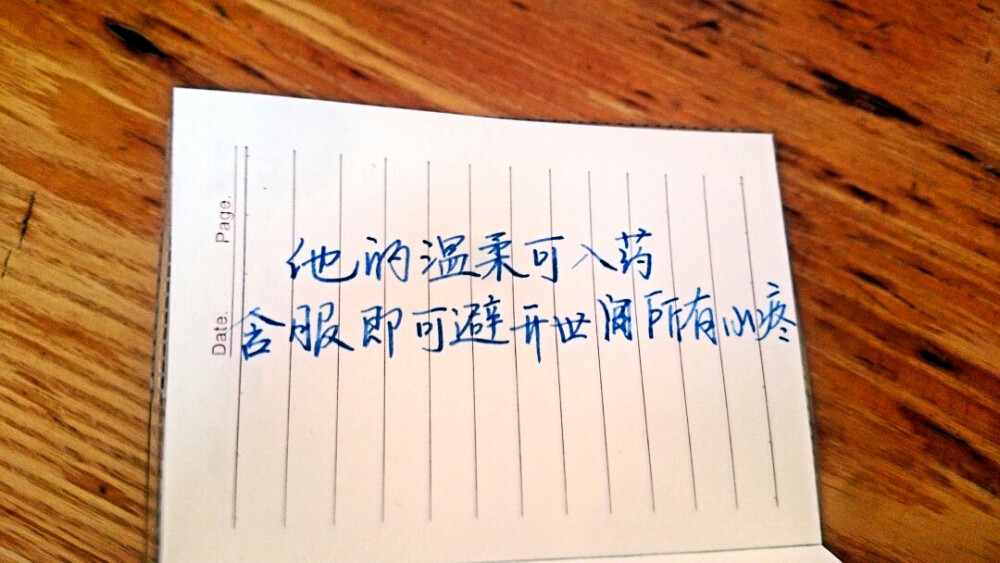 他的温柔可入药
含服即可避开世间所有心疼
Date.
Page.